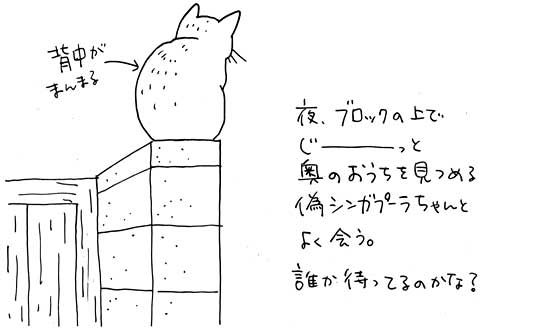 背中が
まんまる
夜、ブロックの上で
じーーーっと
奥のおうちを見つめる
偽シンガプーラちゃんと
よく会う。
誰か待ってるのかな?